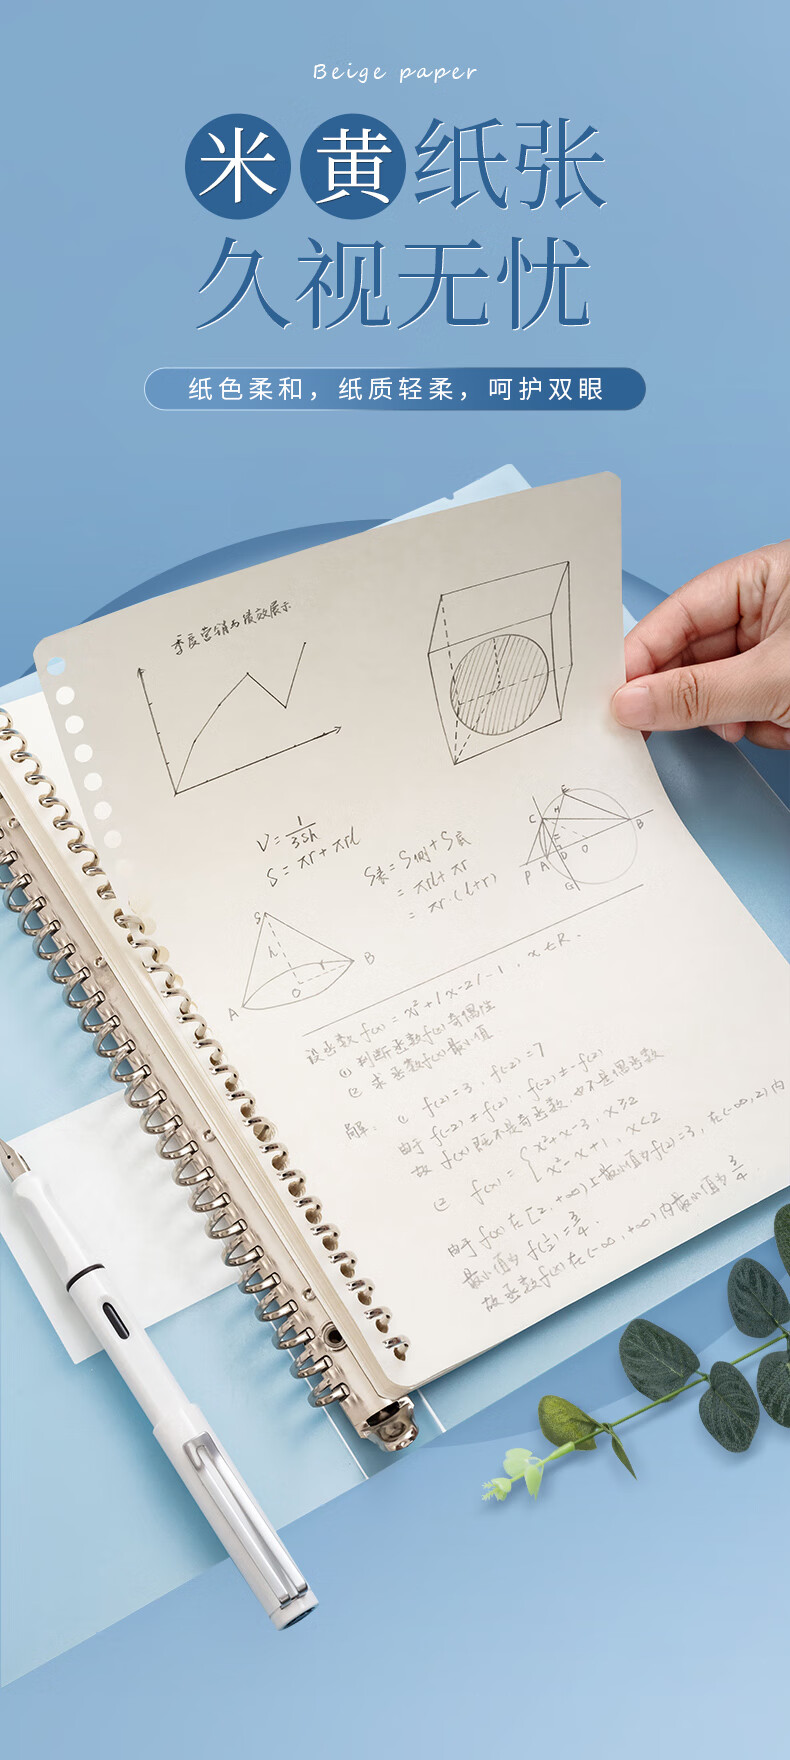 Beige paper
米黄纸张
久视无忧
纸色柔和，纸质轻柔，呵护双眼
季度营销与绩效展示
V=1/3Sh
S=πr+πrl
S表=S侧+S底
=πrl+πr
=πr·(l+r)
C H E B
P A D O
G
S
h
A O r B
设函数f(x)=x²+|x-2|-1，x∈R.
(1) 判断函数f(x)奇偶性
(2) 求函数f(x)最小值
解：(1) f(2)=3，f(-2)=7
由于 f(-2)≠f(2)，f(-2)≠-f(2)
故 f(x)既不是奇函数，也不是偶函数
(2) f(x)={x²+x-3，x≥2
x²-x+1，x<2
由于f(x)在[2，+∞)上最小值为f(2)=3，在(-∞,2)内
最小值为 f(1/2)=3/4.
故函数f(x)在(-∞，+∞)内最小值为3/4.